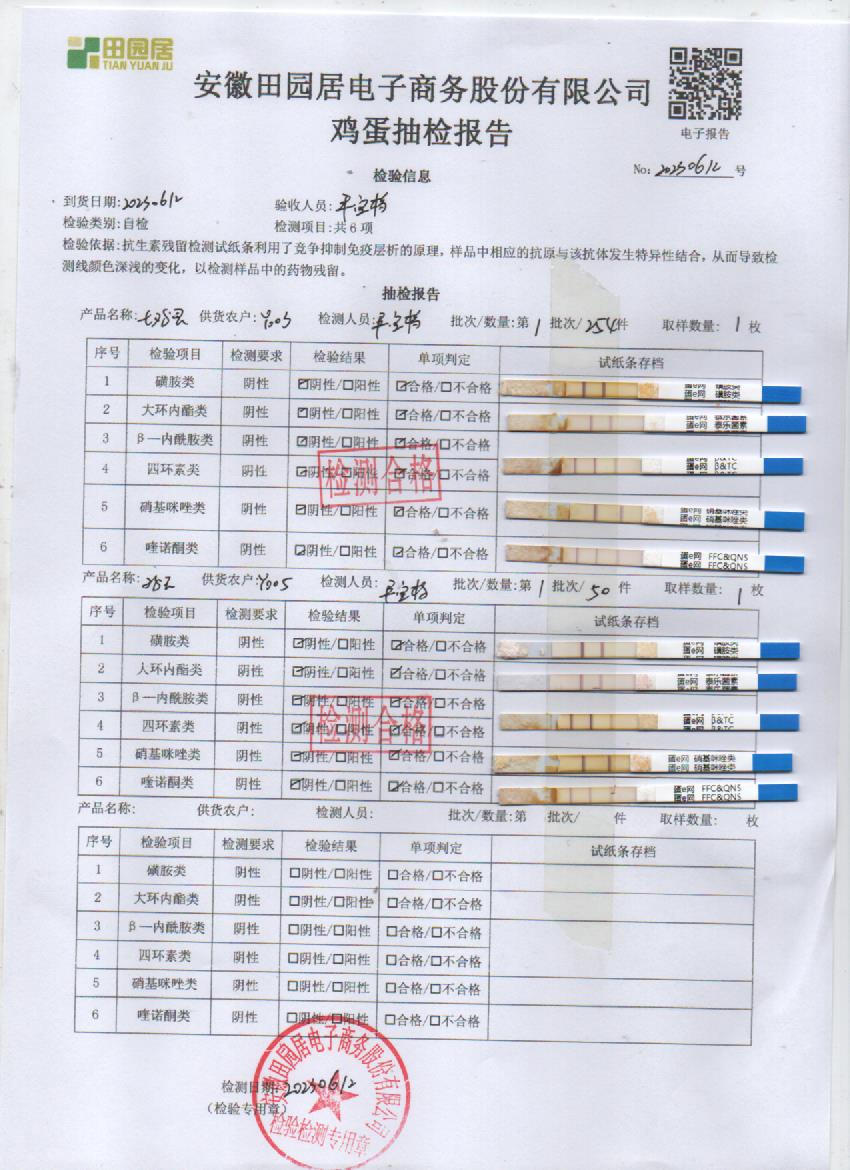 田园居
TIAN YUAN JU
安徽田园居电子商务股份有限公司
鸡蛋抽检报告
电子报告
检验信息
No: 20230612 号
到货日期:20230612 验收人员:
检验类别:自检 检测项目:共6项
检验依据:抗生素残留检测试纸条利用了竞争抑制免疫层析的原理，样品中相应的抗原与该抗体发生特异性结合，从而导致检
测线颜色深浅的变化，以检测样品中的药物残留。
抽检报告
产品名称: 供货农户:Y005 检测人员: 批次/数量:第1批次/254件 取样数量: 1 枚
序号 检验项目 检测要求 检验结果 单项判定 试纸条存档
1 磺胺类 阴性 ☑阴性/☐阳性 ☑合格/☐不合格 蛋e网 磺胺类
2 大环内酯类 阴性 ☑阴性/☐阳性 ☑合格/☐不合格 蛋e网 泰乐菌素
3 β—内酰胺类 阴性 ☑阴性/☐阳性 ☑合格/☐不合格
4 四环素类 阴性 ☑阴性/☐阳性 ☑合格/☐不合格 蛋e网 β&TC
检测合格
5 硝基咪唑类 阴性 ☑阴性/☐阳性 ☑合格/☐不合格 蛋e网 硝基咪唑类
6 喹诺酮类 阴性 ☑阴性/☐阳性 ☑合格/☐不合格 蛋e网 FFC&QNS
产品名称: 供货农户:Y005 检测人员: 批次/数量:第1批次/50件 取样数量: 1 枚
序号 检验项目 检测要求 检验结果 单项判定 试纸条存档
1 磺胺类 阴性 ☑阴性/☐阳性 ☑合格/☐不合格 蛋e网 磺胺类
2 大环内酯类 阴性 ☑阴性/☐阳性 ☑合格/☐不合格 蛋e网 泰乐菌素
3 β—内酰胺类 阴性 ☑阴性/☐阳性 ☑合格/☐不合格
4 四环素类 阴性 ☑阴性/☐阳性 ☑合格/☐不合格 蛋e网 β&TC
检测合格
5 硝基咪唑类 阴性 ☑阴性/☐阳性 ☑合格/☐不合格 蛋e网 硝基咪唑类
6 喹诺酮类 阴性 ☑阴性/☐阳性 ☑合格/☐不合格 蛋e网 FFC&QNS
产品名称: 供货农户: 检测人员: 批次/数量:第 批次/ 件 取样数量: 枚
序号 检验项目 检测要求 检验结果 单项判定 试纸条存档
1 磺胺类 阴性 ☐阴性/☐阳性 ☐合格/☐不合格
2 大环内酯类 阴性 ☐阴性/☐阳性 ☐合格/☐不合格
3 β—内酰胺类 阴性 ☐阴性/☐阳性 ☐合格/☐不合格
4 四环素类 阴性 ☐阴性/☐阳性 ☐合格/☐不合格
5 硝基咪唑类 阴性 ☐阴性/☐阳性 ☐合格/☐不合格
6 喹诺酮类 阴性 ☐阴性/☐阳性 ☐合格/☐不合格
检测日期:20230612
（检验专用章）
安徽田园居电子商务股份有限公司
检验检测专用章